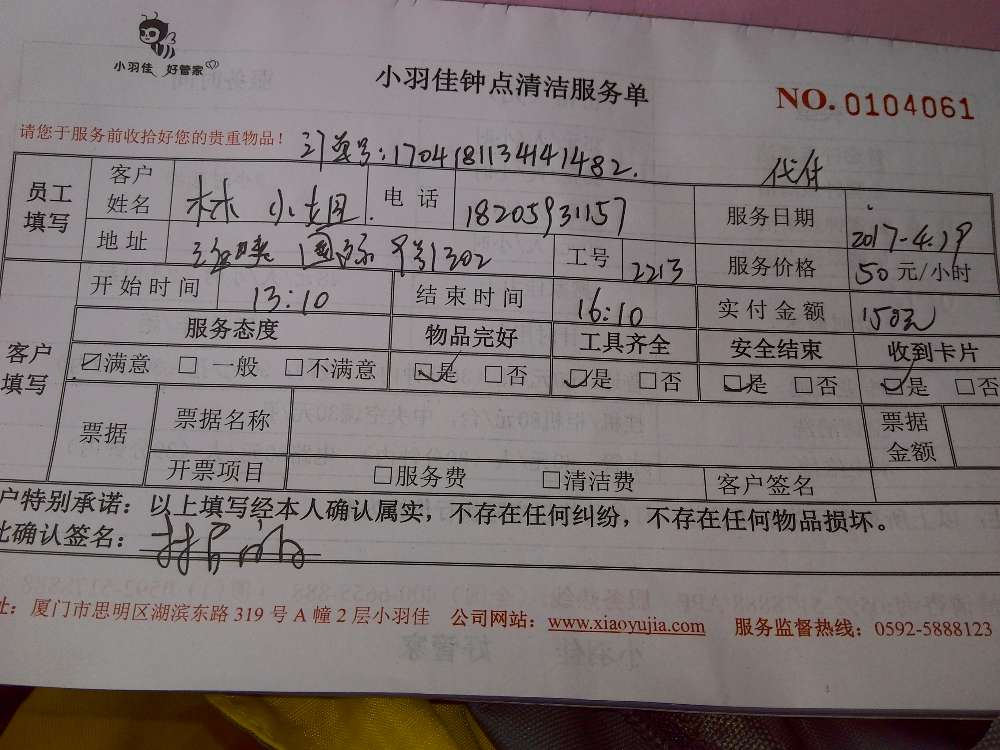 小羽佳 好管家
小羽佳钟点清洁服务单
NO.0104061
请您于服务前收拾好您的贵重物品!
订单号:1704181134141482.
代付
员工填写 客户姓名 林小姐. 电话 18205931157 服务日期 2017-4.19
地址 国际 1302 工号 2213 服务价格 50元/小时
客户填写 开始时间 13:10 结束时间 16:10 实付金额 150元
服务态度 物品完好 工具齐全 安全结束 收到卡片
☑满意 □一般 □不满意 ☑是 □否 ☑是 □否 ☑是 □否 ☑是 □否
票据 票据名称 票据金额
开票项目 □服务费 □清洁费 客户签名
户特别承诺:以上填写经本人确认属实,不存在任何纠纷,不存在任何物品损坏。
此确认签名:
址:厦门市思明区湖滨东路319号A幢2层小羽佳 公司网站:www.xiaoyujia.com 服务监督热线:0592-5888123